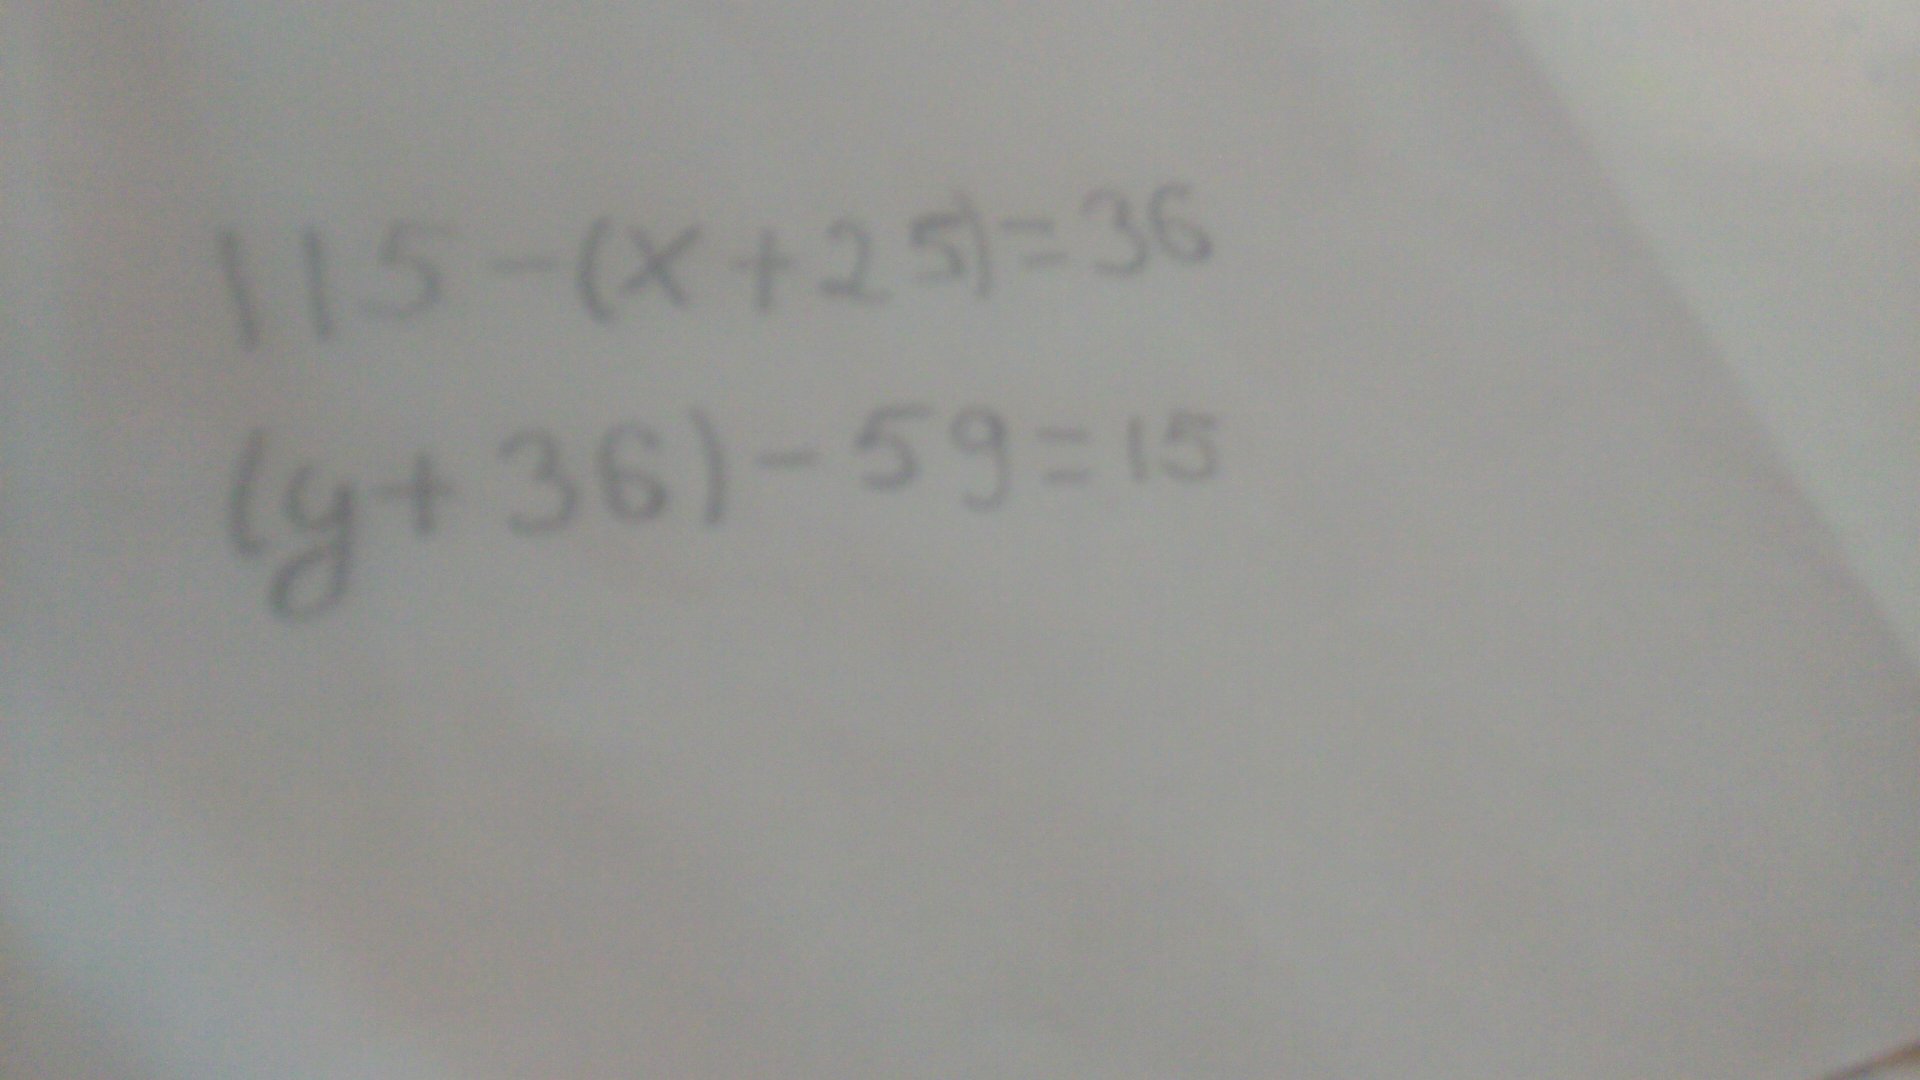 115-(x+25)=36
(y+36)-59=15